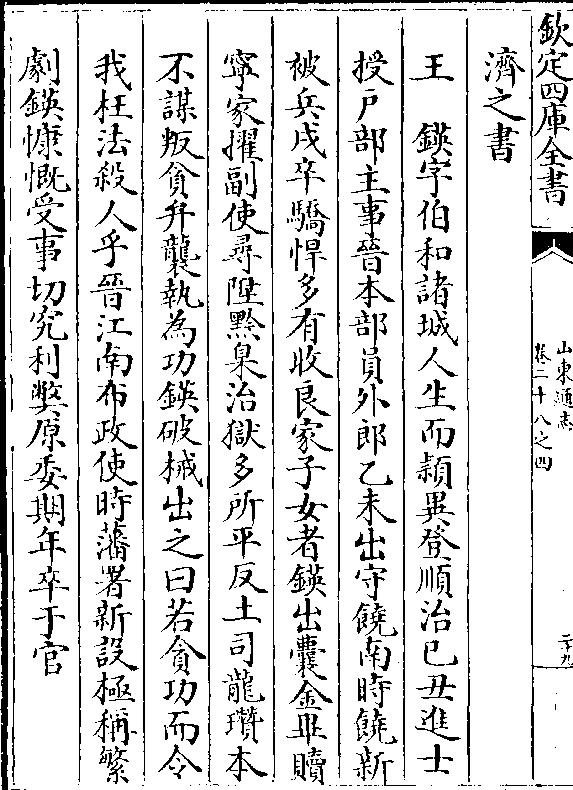 欽定四庫全書
山東通志
卷二十八之四
二十九
濟之書
王　鍈字伯和諸城人生而穎異登順治己丑進士
授戶部主事晉本部員外郎乙未出守饒南時饒新
被兵戍卒驕悍多有收良家子女者鍈出囊金畢贖
寧家擢副使尋陞黔臬治獄多所平反土司龍瓚本
不謀叛貪弁襲執為功鍈破械出之曰若貪功而令
我枉法殺人乎晉江南布政使時藩署新設極稱繁
劇鍈慷慨受事切究利弊原委期年卒于官